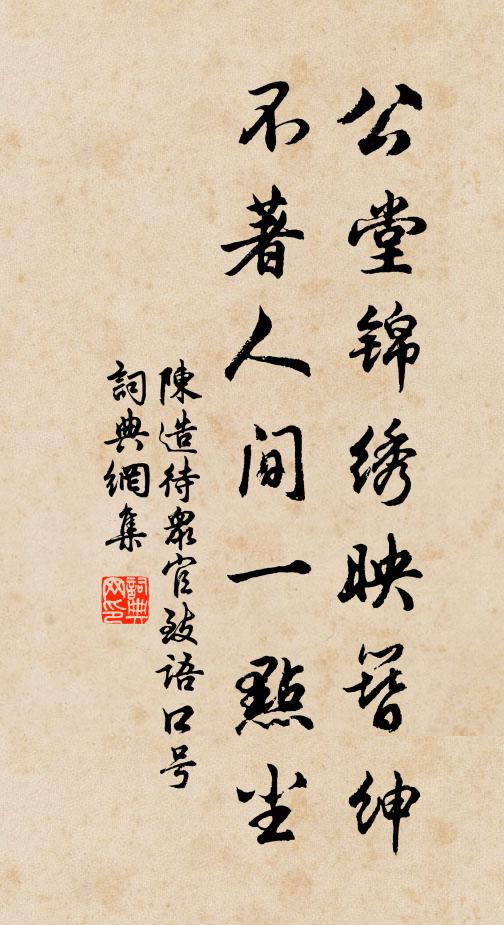 公堂锦绣映簪绅
不著人间一點尘
陳造待眾官致语口号
詞典網集
詞典網印